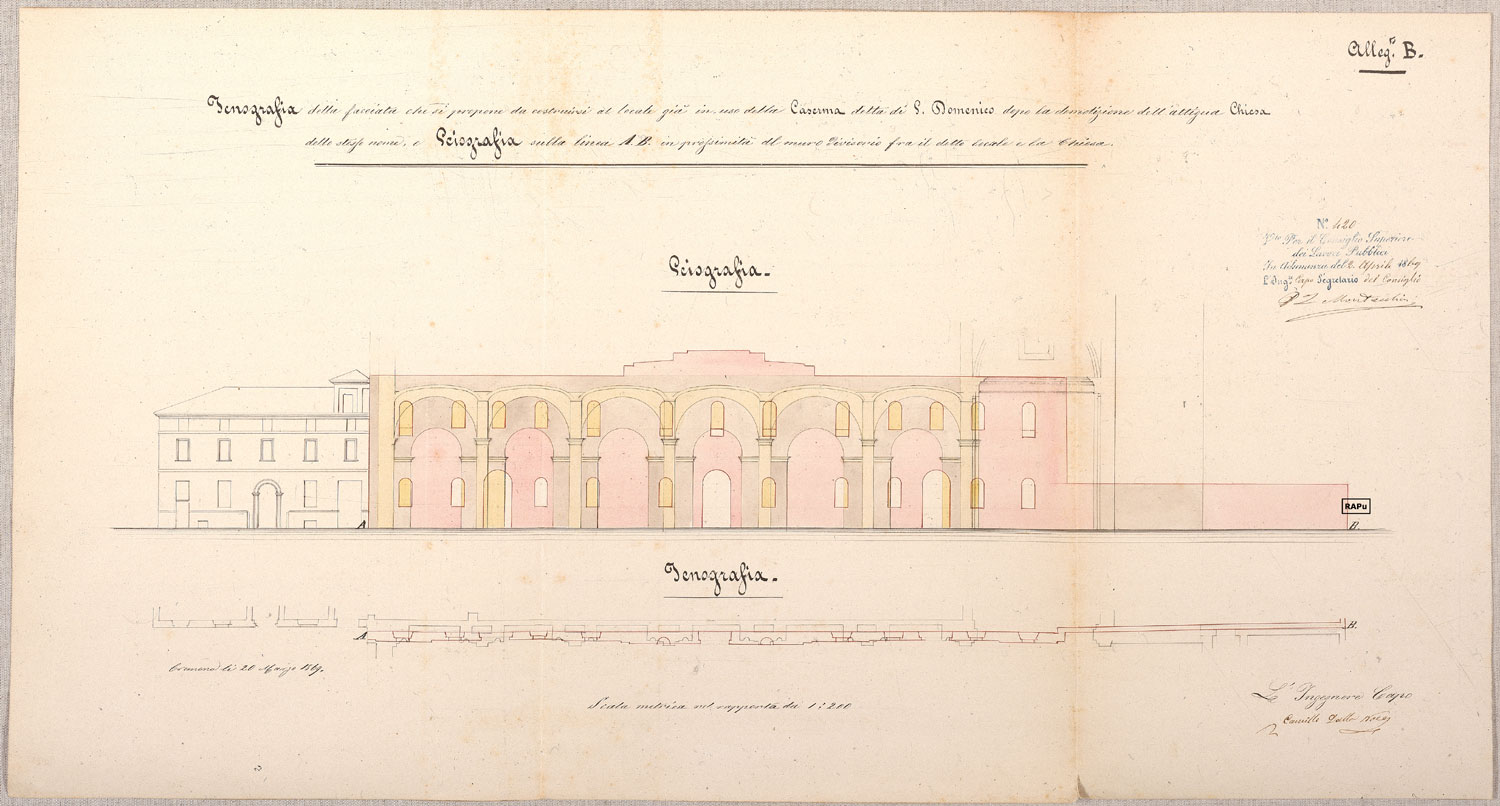 Alleg.º B.
Icnografia della facciata che si propone da costruirsi al locale già in uso della Caserma detta di S. Domenico dopo la demolizione dell'attigua Chiesa
dello stesso nome, e Sciografia sulla linea A.B. in prossimità al muro divisorio fra il detto locale e la Chiesa.
Nº 420
Vto Per il Consiglio Superiore
dei Lavori Pubblici
In Adunanza del 2. Aprile 1869
L'Ingº Capo Segretario del Consiglio
Sciografia.
A
RAPu
B.
Icnografia.
A
B.
Cremona li 20 Marzo 1869.
Scala metrica nel rapporto di 1:200
L'Ingegnere Capo
Camillo Dalla